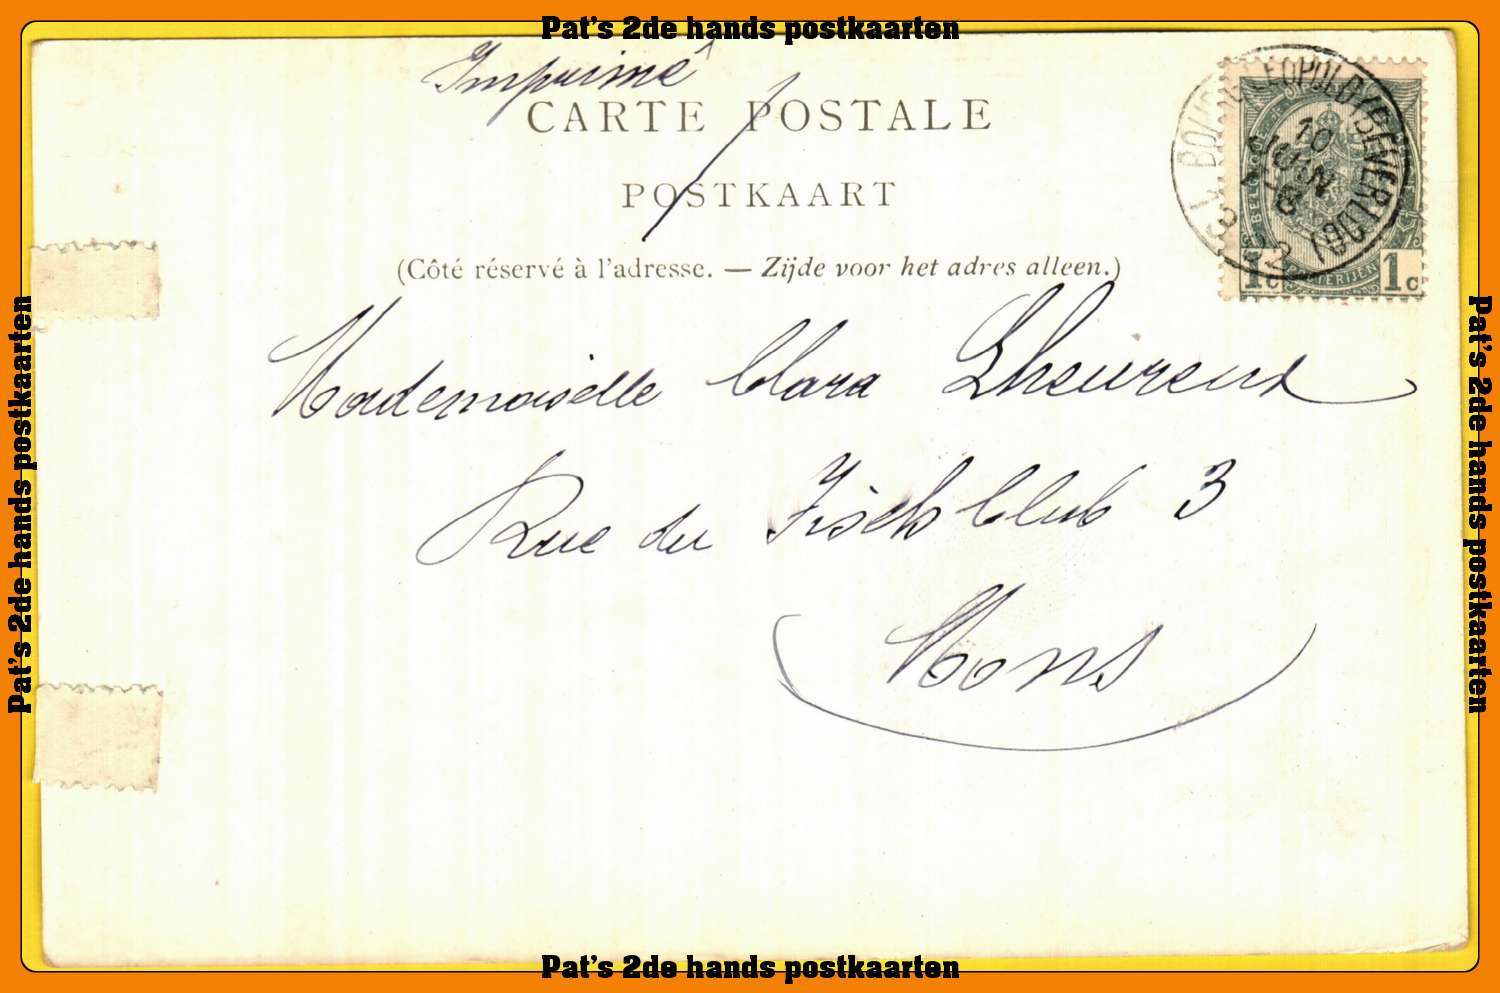 Pat's 2de hands postkaarten
Imprimé
CARTE POSTALE
POSTKAART
(Côté réservé à l'adresse. — Zijde voor het adres alleen.)
BOURG-LEOPOLD (BEVERLOO)
10
JUIN
1c 1c
Mademoiselle Clara Lheureux
Rue du Fisch Club 3
Mons
Pat's 2de hands postkaarten
Pat's 2de hands postkaarten
Pat's 2de hands postkaarten